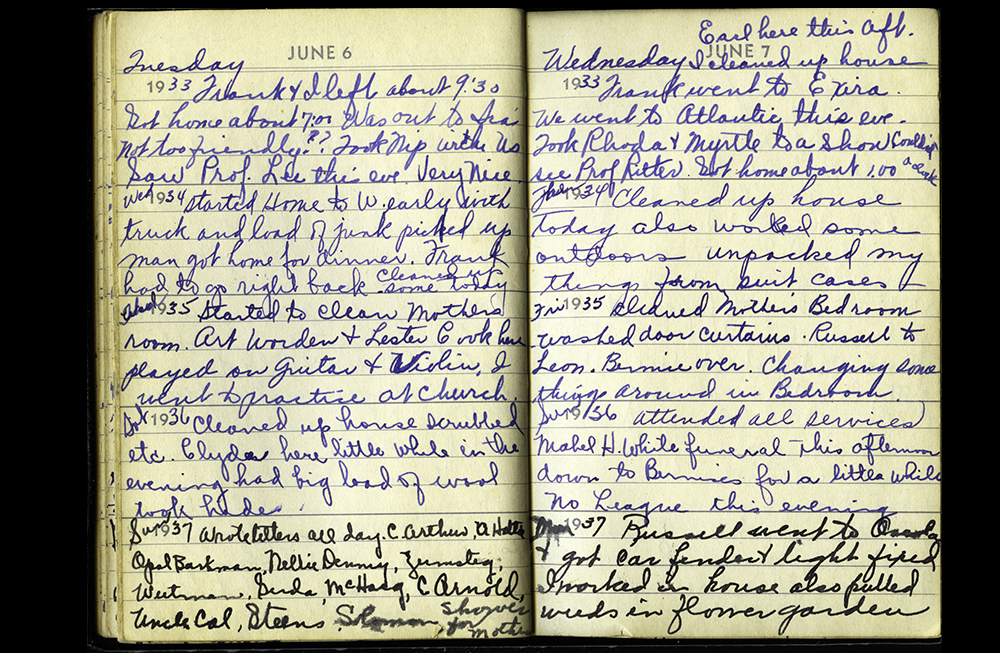 JUNE 6
Tuesday
1933 Frank & I left about 9:30
Got home about 7:00 Was out to
Not too friendly?? Took Nip with us
Saw Prof. Lee this eve. Very Nice.
Wed 1934 started Home to W. early with
truck and load of junk picked up
man got home for dinner. Frank
had to go right back Cleaned up some today
1935 Started to clean Mothers
room. Art Worden & Lester Cook here
played on Guitar & Violin, I
went to practice at Church.
Sat 1936 Cleaned up house scrubbed
etc. Clyde here little while in the
evening had big load of wool
took hides.
Sun 1937 Wrote letters all day. C. Arthur,
Opal Barkman, Nellie Denny,
McHarg, C Arnold,
Uncle Cal, Steens Shower for Mother
Earl here this Aft.
JUNE 7
Wednesday I cleaned up house
1933 Frank went to Exira.
We went to Atlantic this eve.
Took Rhoda & Myrtle to a Show Couldn't
see Prof Ritter. Got home about 1:00 o'clock
1934 Cleaned up house
today also worked some
outdoors unpacked my
things from suit cases
Fri 1935 Cleaned Mothers Bedroom
washed door curtains. Russell to
Leon. Bernice over. Changing some
things around in Bedroom.
Sun 1936 attended all services
Mabel H. White funeral this afternoon
down to Bernices for a little while
No League this evening
Mon 1937 Russell went to
& got car fender & light fixed
I worked in house also pulled
weeds in flower garden